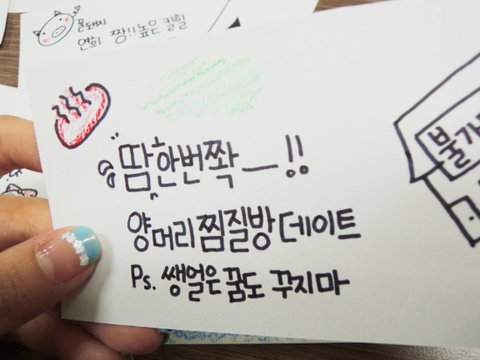 꿀돼지
연희 짱!! 높은 킬힐
땀한번쫙—!!
양머리찜질방데이트
Ps. 쌩얼은 꿈도 꾸지마
불가